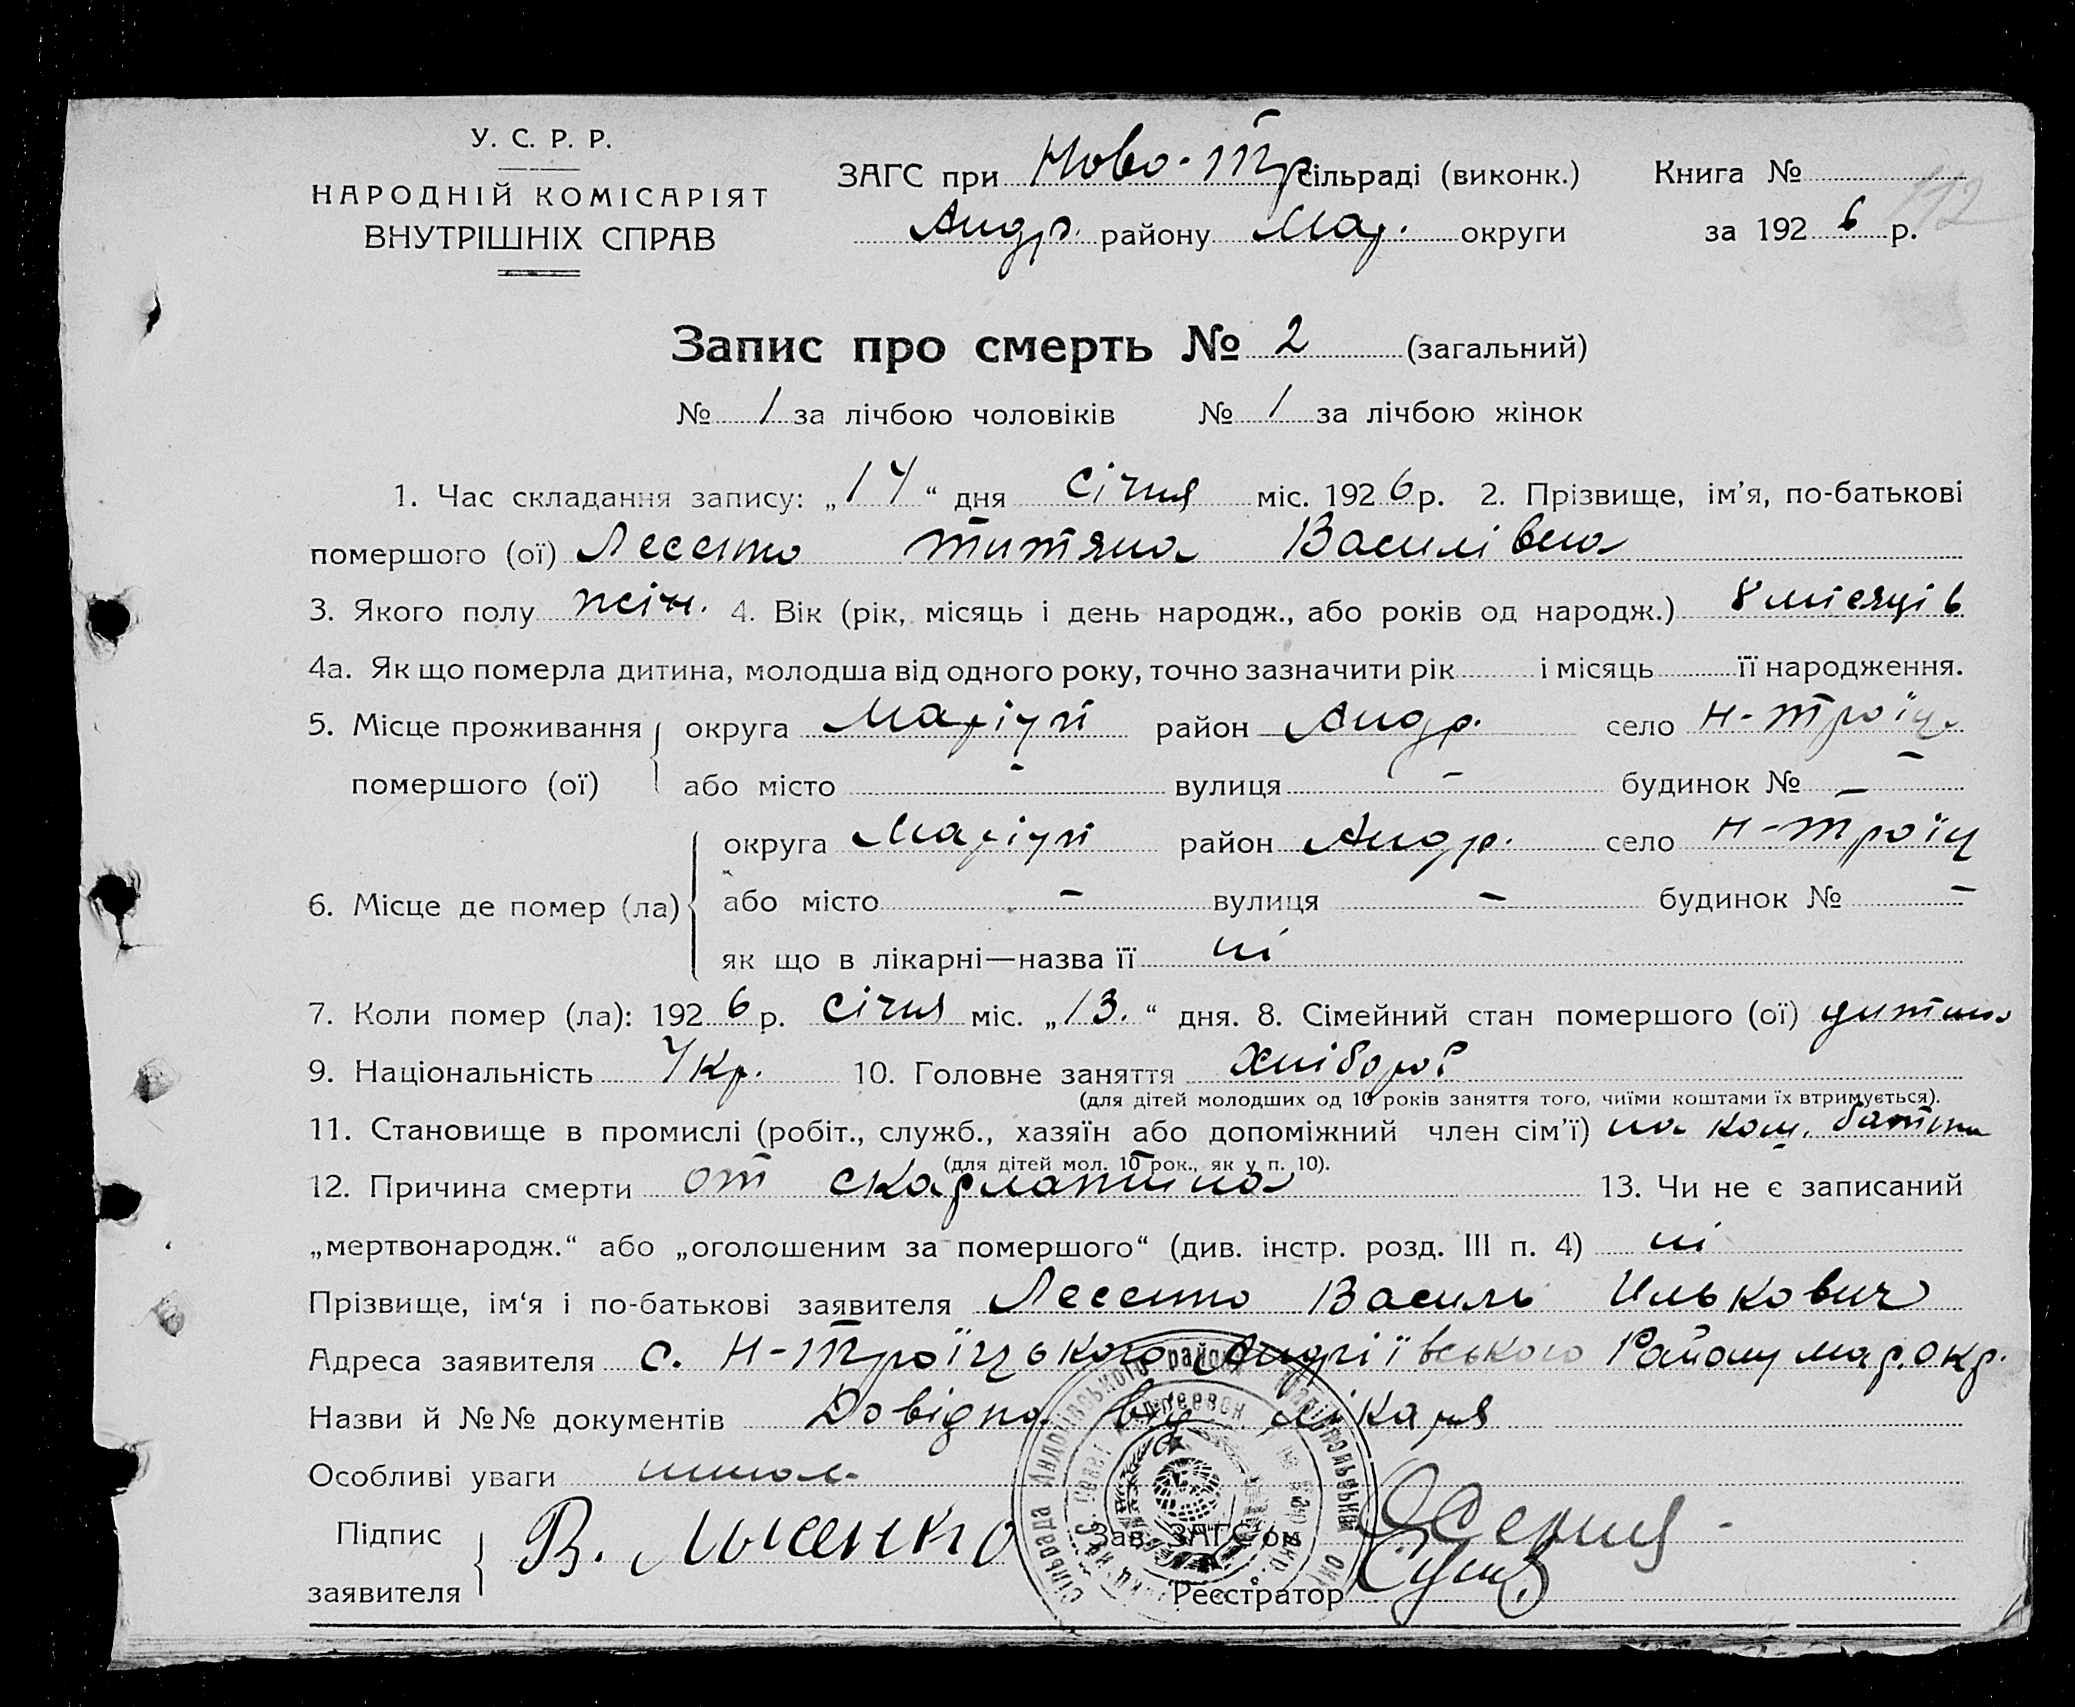 У. С. Р. Р.
НАРОДНІЙ КОМІСАРІЯТ
ВНУТРІШНІХ СПРАВ
ЗАГС при Ново-Тр сільраді (виконк.) Книга №
112
Андр. району Мар. округи за 1926 р.
Запис про смерть № 2 (загальний)
№ 1 за лічбою чоловіків № 1 за лічбою жінок
1. Час складання запису: „14“ дня Січня міс. 1926 р. 2. Прізвище, ім'я, по-батькові
помершого (ої) Титяна Василівна
3. Якого полу жін. 4. Вік (рік, місяць і день народж., або років од народж.) 8 місяців
4а. Як що померла дитина, молодша від одного року, точно зазначити рік і місяць її народження.
5. Місце проживання округа Маріуп район Андр. село Н-Троїц.
помершого (ої) або місто - вулиця - будинок № -
6. Місце де помер (ла) округа Маріуп район Андр. село Н-Троїц
або місто - вулиця - будинок № -
як що в лікарні—назва її ні
7. Коли помер (ла): 1926 р. Січня міс. „13.“ дня. 8. Сімейний стан помершого (ої) дитина
9. Національність Укр. 10. Головне заняття Хлібороб
(для дітей молодших од 10 років заняття того, чиїми коштами їх втримується).
11. Становище в промислі (робіт., служб., хазяїн або допоміжний член сім'ї) на кош. батька
(для дітей мол. 10 рок., як у п. 10).
12. Причина смерти от скарлатина 13. Чи не є записаний
„мертвонародж.“ або „оголошеним за помершого“ (див. інстр. розд. III п. 4) ні
Прізвище, ім'я і по-батькові заявителя Василь Илькович
Адреса заявителя с. Н-Троїцького Андріївського Району мар. окр.
Назви й №№ документів Довідка від лікаря
Особливі уваги
Підпис
заявителя В. Лысенко
Зав. ЗАГС'ом
Реєстратор